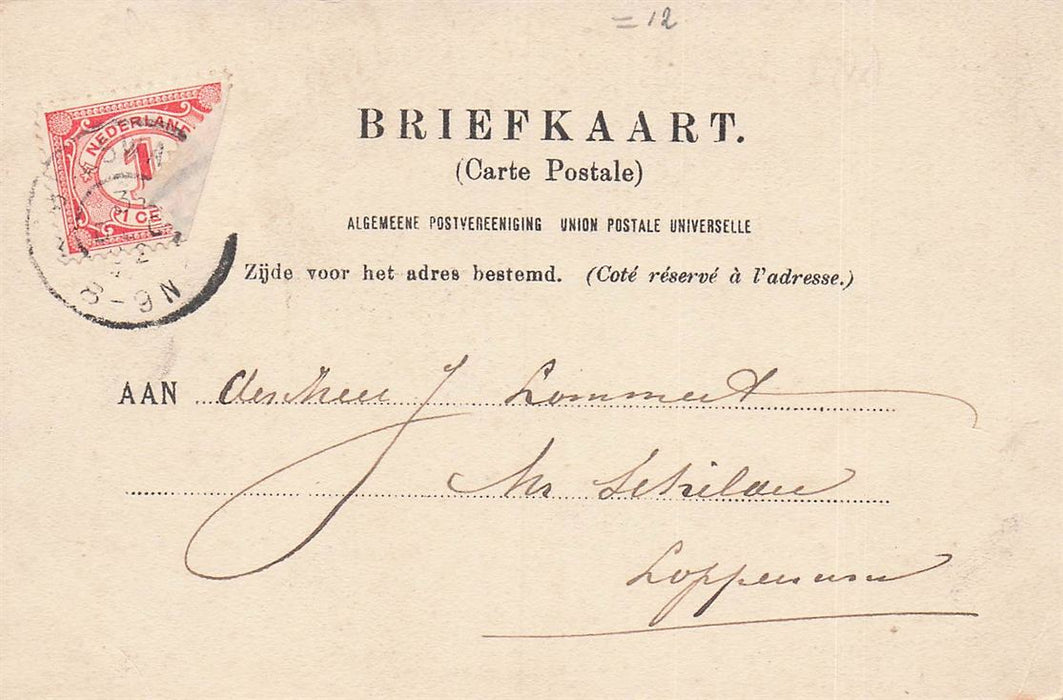 = 12
NEDERLAN
1
1 CE
8-9 N
BRIEFKAART.
(Carte Postale)
ALGEMEENE POSTVEREENIGING UNION POSTALE UNIVERSELLE
Zijde voor het adres bestemd. (Coté réservé à l'adresse.)
AAN den Heer J Lommert
Mr Schilder
Loppersum